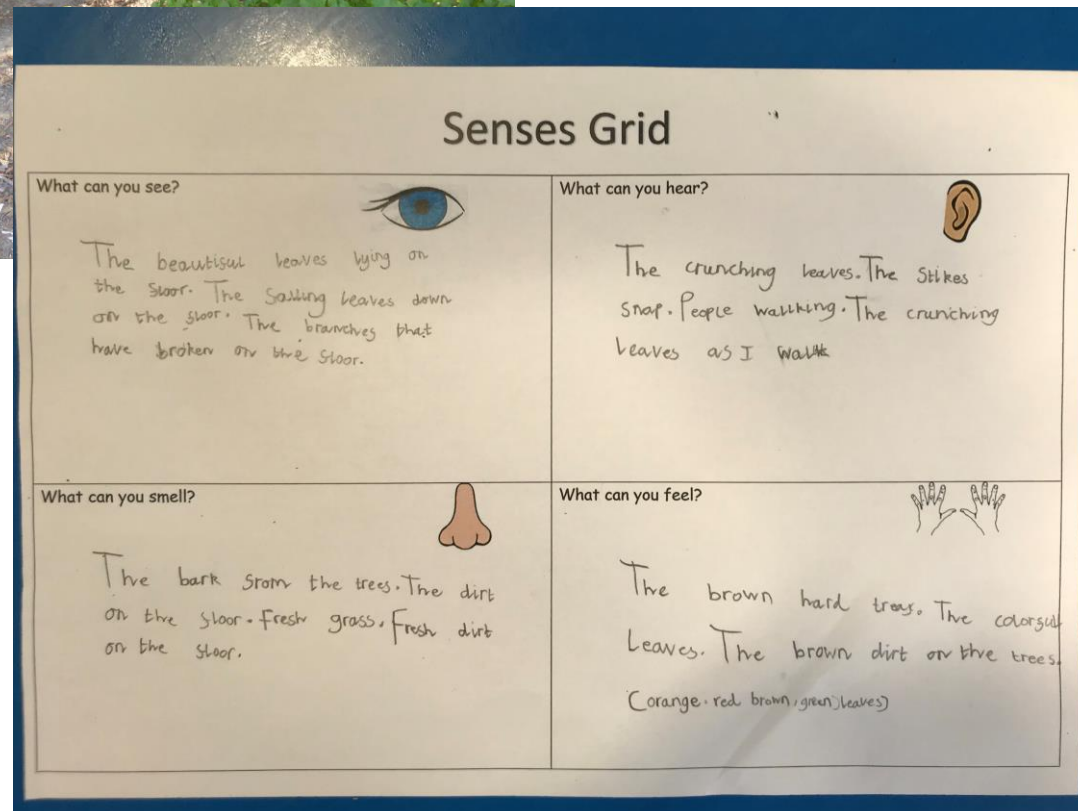 Senses Grid
What can you see?
The beautiful leaves lying on
the floor. The falling leaves down
on the floor. The branches that
have broken on the floor.
What can you hear?
The crunching leaves. The stikes
snap. People wallking. The crunching
leaves as I walk
What can you smell?
The bark from the trees. The dirt
on the floor. Fresh grass. Fresh dirt
on the floor.
What can you feel?
The brown hard treas. The colorfull
Leaves. The brown dirt on the trees.
(orange. red brown, green) leaves)